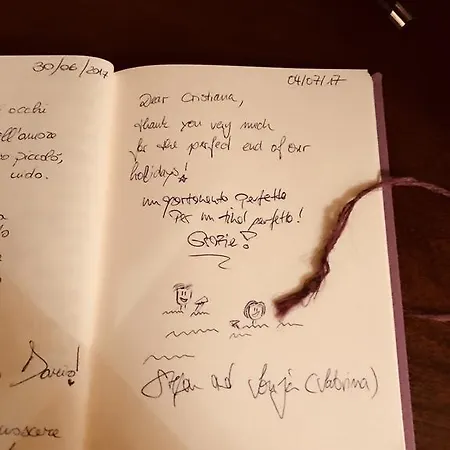 30/06/2017
i occhi
ell'amore
o piccolo,
nido.
Dario!
04/07/17
Dear Cristiana,
thank you very much
for the perfect end of our
holidays!
un apartamento perfetto
Per un final perfetto!
Grazie!
Stefan and (Sabrina)